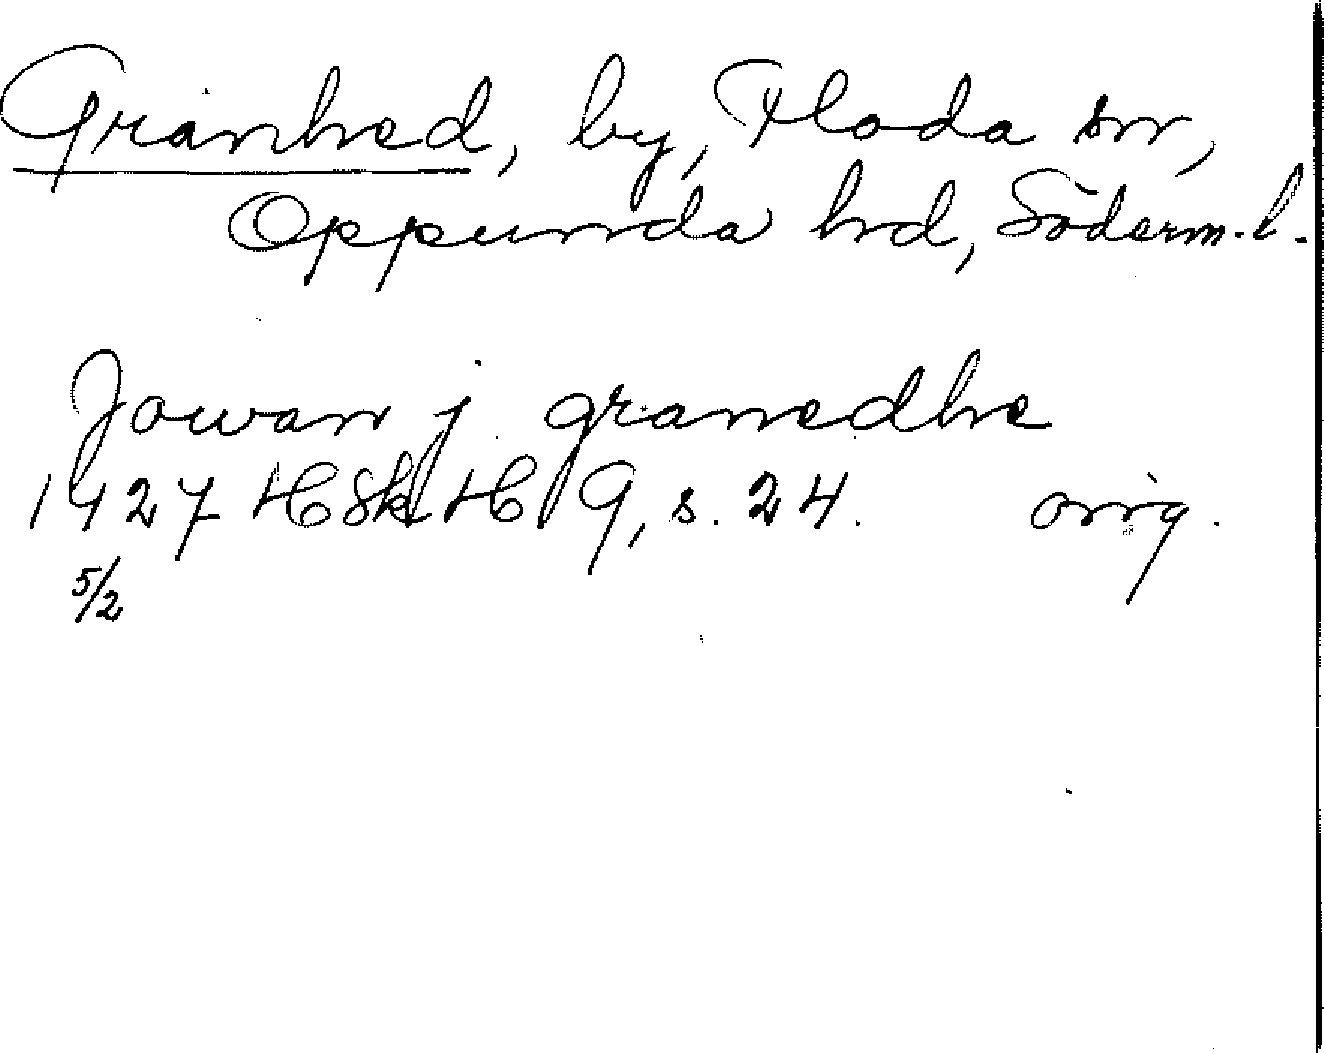 Granhed, by, Floda sn,
Oppunda hd, Söderm. l.
Jowan j granedhe
1427 HSkH 9, s. 24. orig.
5/2